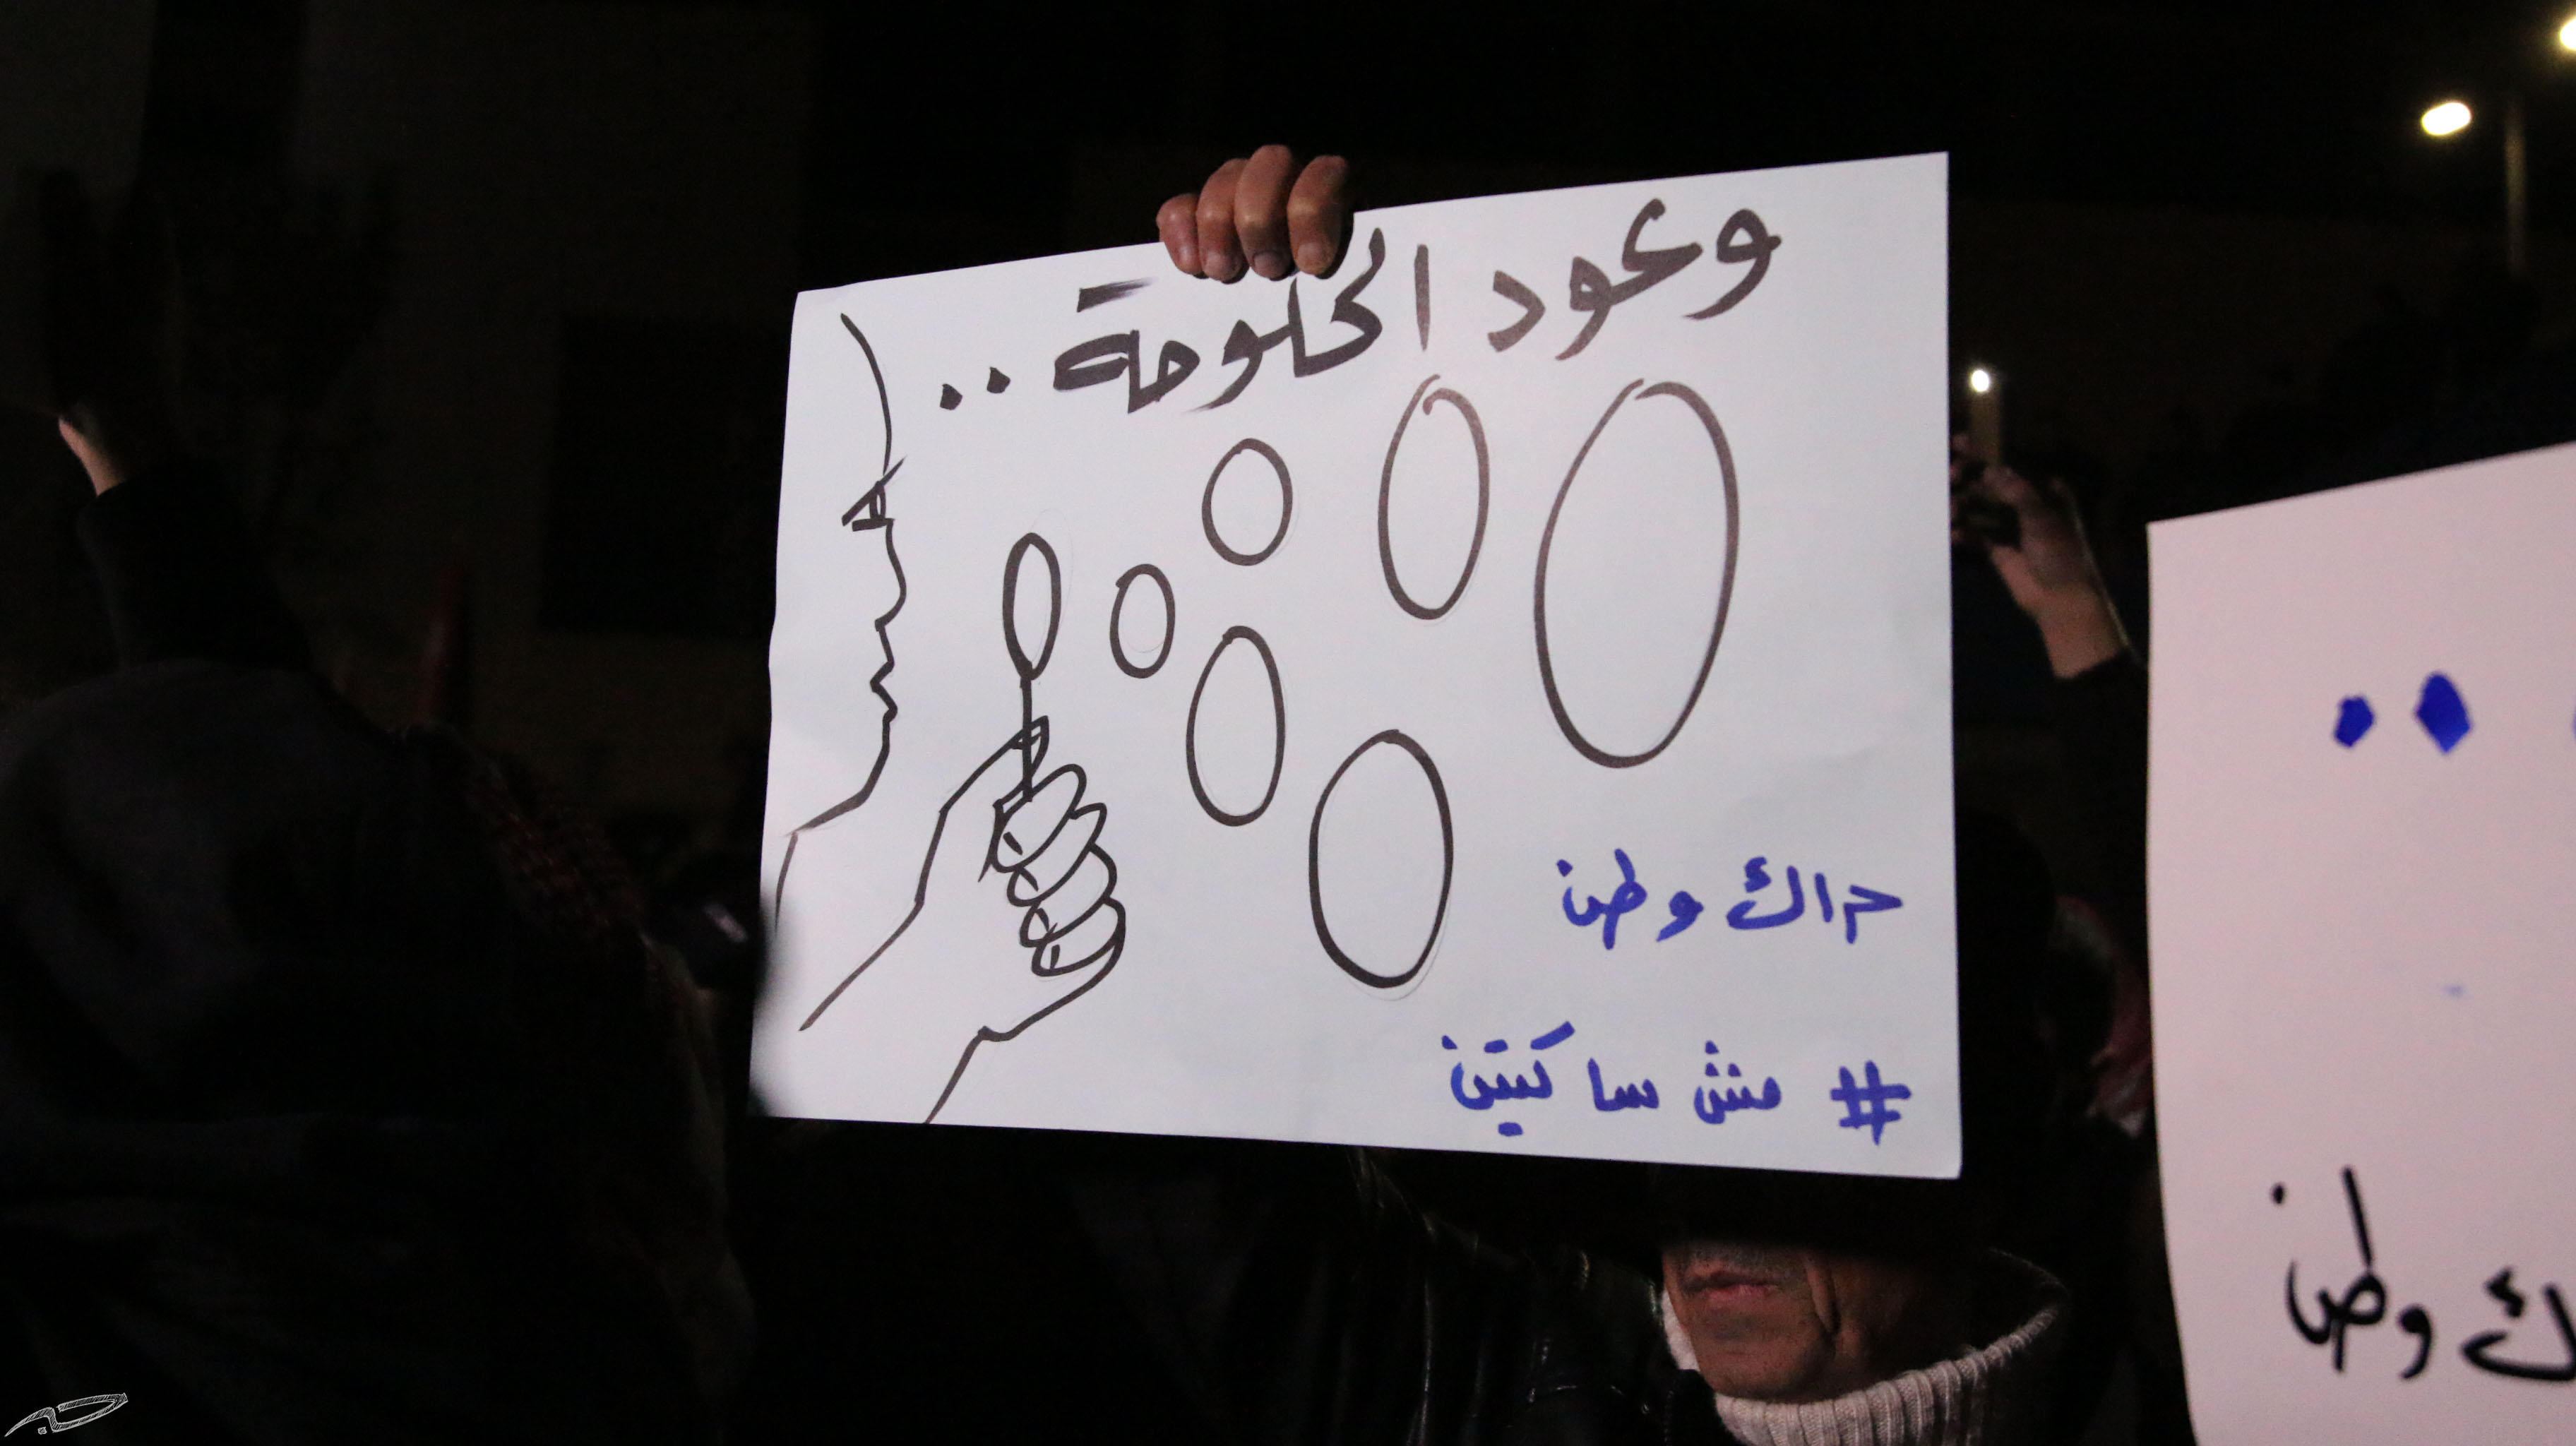 وعود الحكومة ..
حراك وطن
# مش ساكتين
..
ك وطن